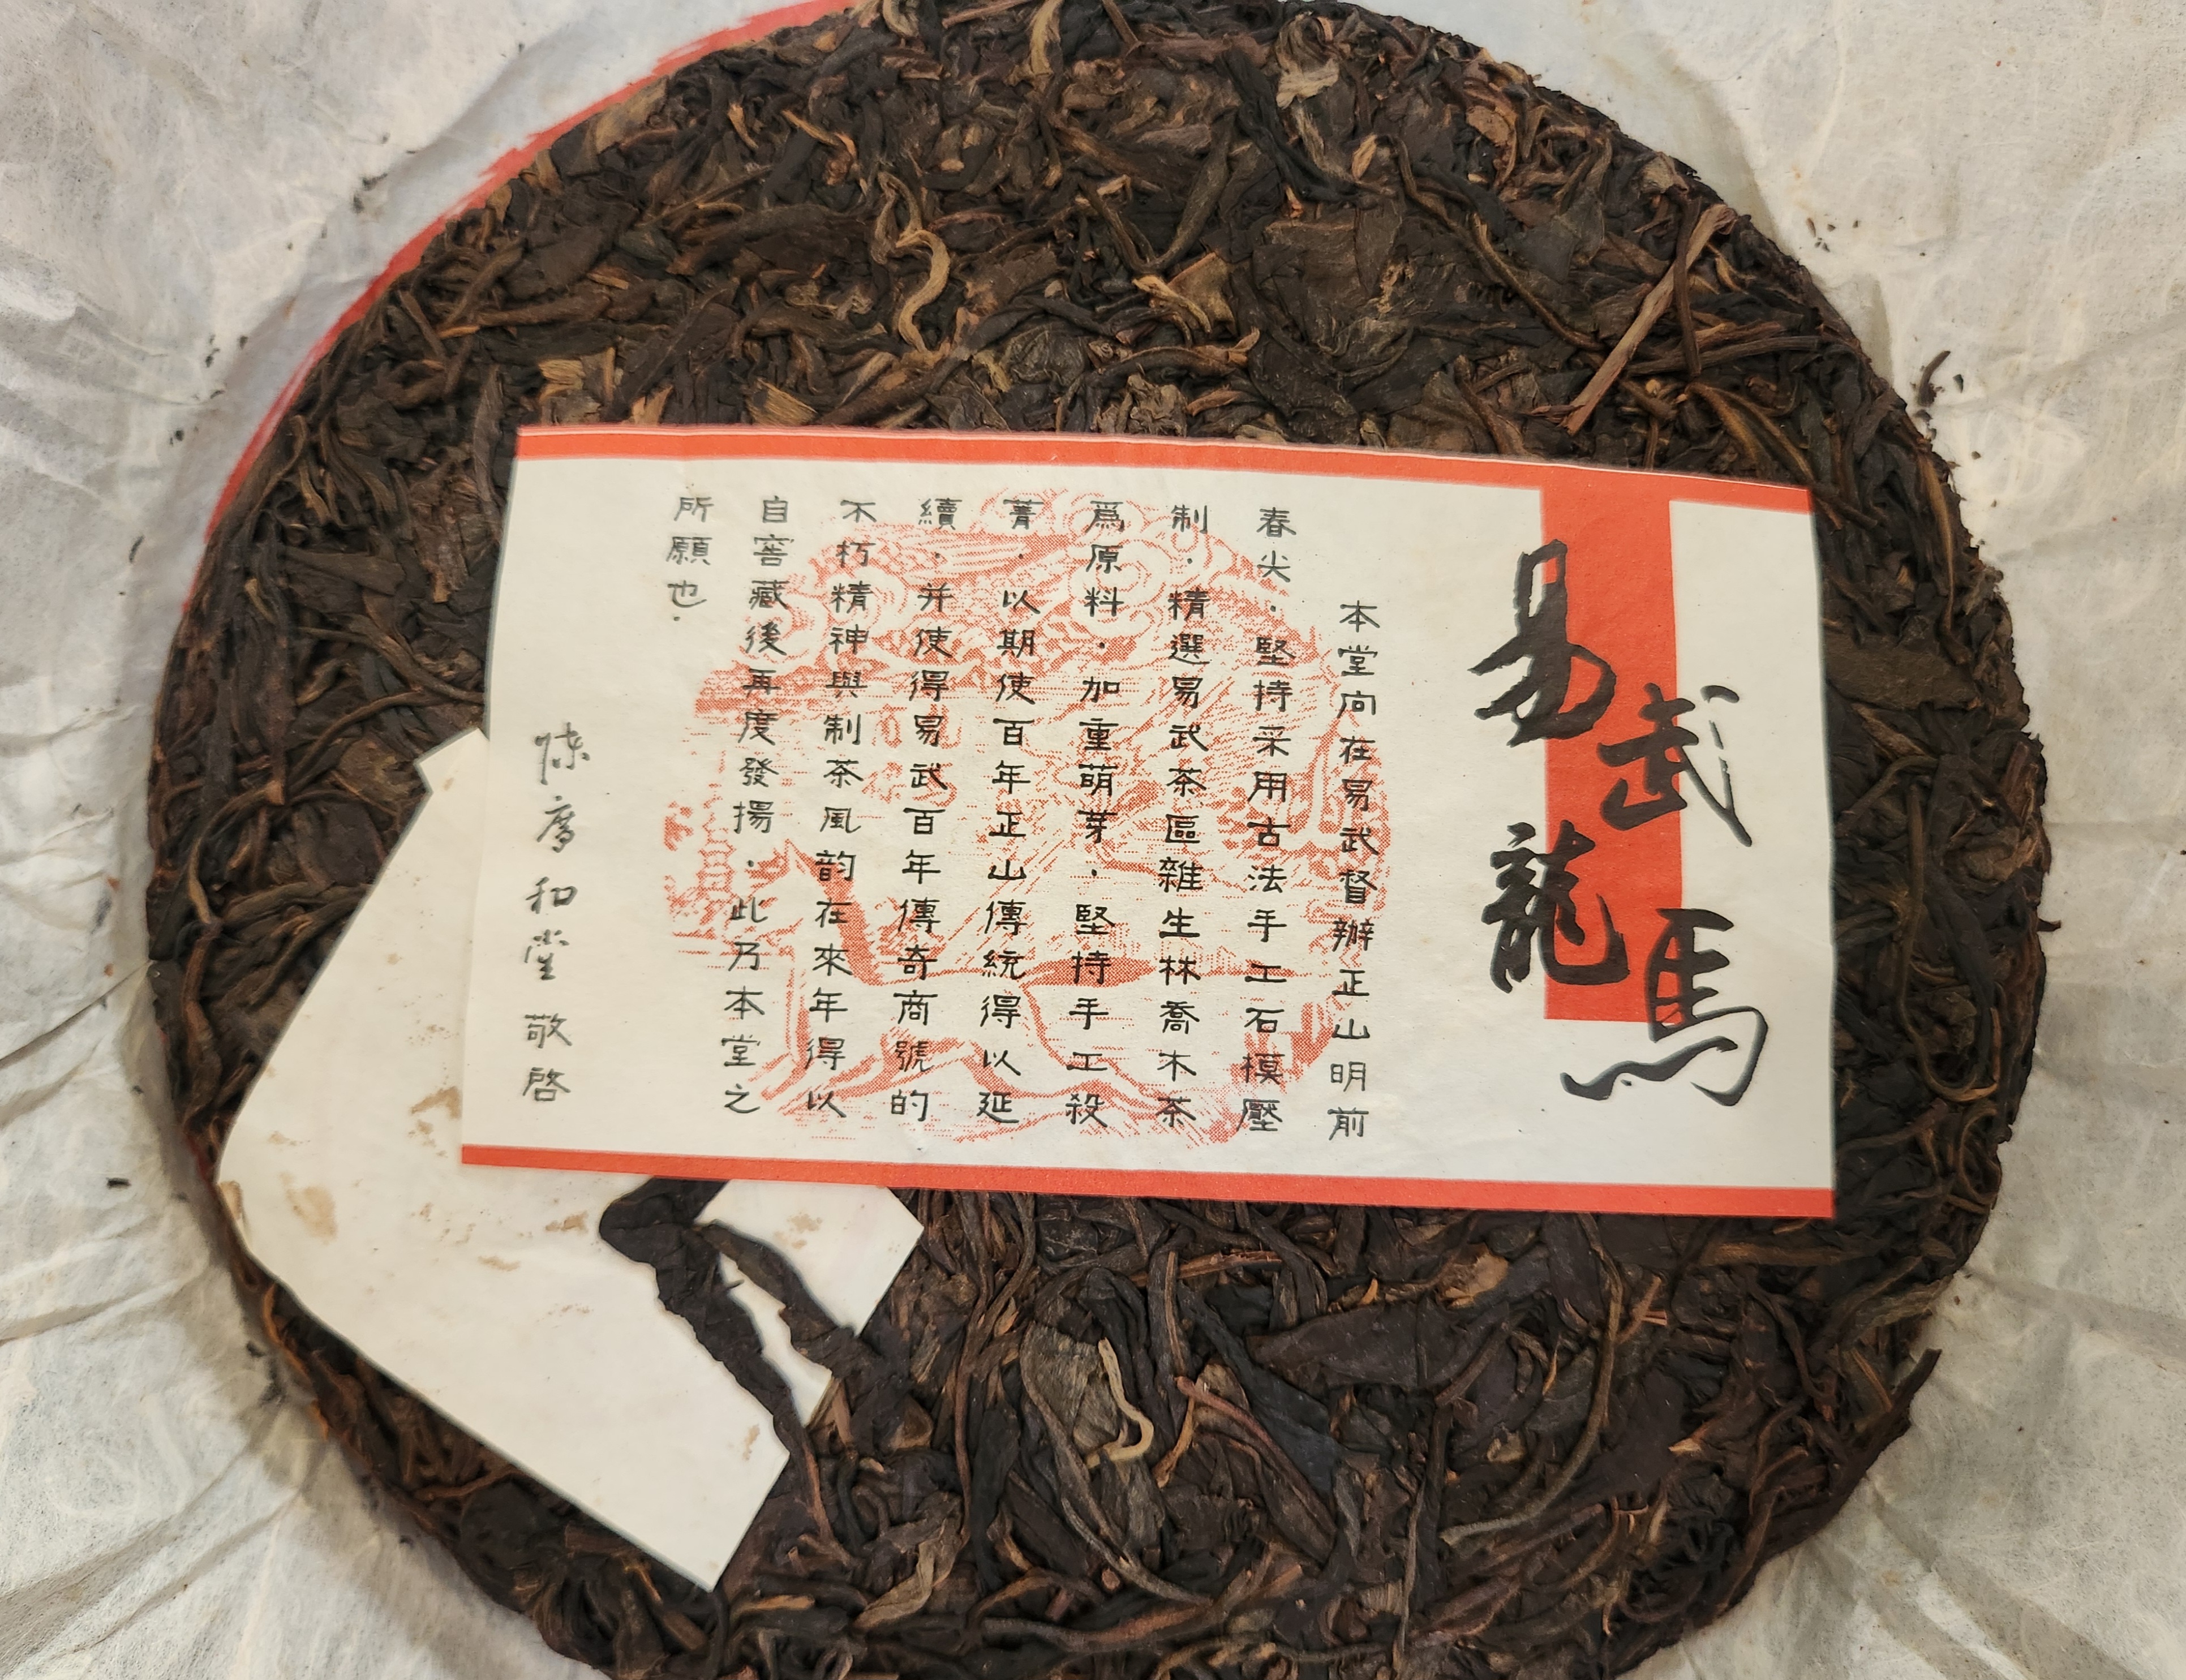 易武
龍馬
本堂向在易武督辦正山明前
春尖．堅持采用古法手工石模壓
制．精選易武茶區雜生林喬木茶
爲原料．加重萌芽．堅持手工殺
菁．以期使百年正山傳統得以延
續．并使得易武百年傳奇商號的
不朽精神與制茶風韵在來年得以
自窖藏後再度發揚．此乃本堂之
所願也．
陳 和堂 敬啓